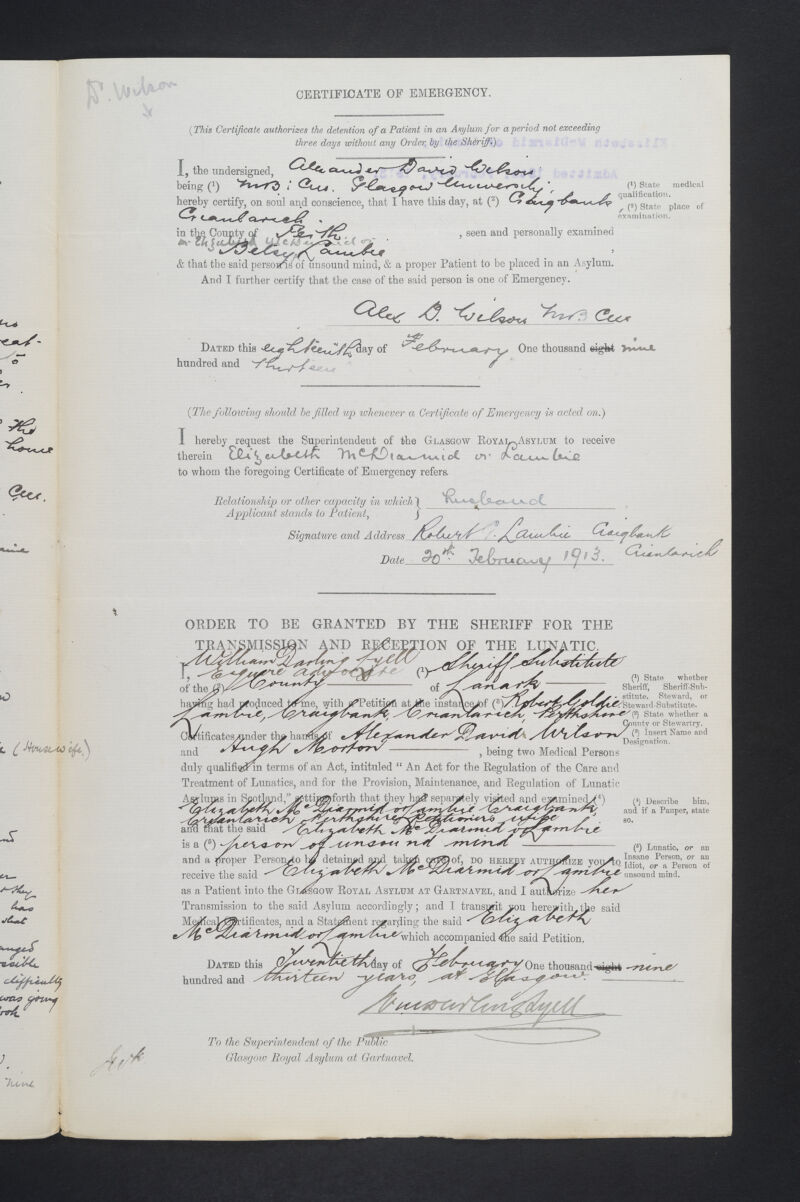 Dr. Wilson
CERTIFICATE OF EMERGENCY.
(This Certificate authorizes the detention of a Patient in an Asylum for a period not exceeding
three days without any Order by the Sheriff.)
I, the undersigned, Alexander David Wilson
being (¹) M.B; Ch.B. Glasgow University,
(¹) State medical
qualification.
hereby certify, on soul and conscience, that I have this day, at (²) Craigbank
(²) State place of
examination.
Crianlarich
in the County of Perth , seen and personally examined
or Elizabeth McDiarmid or
Betsy Lambie ,
& that the said person is of unsound mind, & a proper Patient to be placed in an Asylum.
And I further certify that the case of the said person is one of Emergency.
Alex D. Wilson M.B
DATED this eighteenth day of February One thousand eight nine
hundred and thirteen
(The following should be filled up whenever a Certificate of Emergency is acted on.)
I hereby request the Superintendent of the GLASGOW ROYAL ASYLUM to receive
therein Elizabeth McDiarmid or Lambie
to whom the foregoing Certificate of Emergency refers.
Relationship or other capacity in which } husband
Applicant stands to Patient,
Signature and Address Robert G. Lambie Craigbank
Crianlarich
Date 20th February 1913.
ORDER TO BE GRANTED BY THE SHERIFF FOR THE
TRANSMISSION AND RECEPTION OF THE LUNATIC.
William Darling Lyell
I, Esquire Advocate (¹) Sheriff Substitute
(¹) State whether
Sheriff, Sheriff-Sub-
stitute, Steward, or
Steward-Substitute.
of the (²) County of Lanark
having had produced to me, with a Petition at the instance of (³) Robert Goldie
(²) State whether a
County or Stewartry.
Lambie, Craigbank, Crianlarich, Perthshire
(³) Insert Name and
Designation.
Certificates under the hands of Alexander David Wilson
and Hugh Morton , being two Medical Persons
duly qualified in terms of an Act, intituled “ An Act for the Regulation of the Care and
Treatment of Lunatics, and for the Provision, Maintenance, and Regulation of Lunatic
Asylums in Scotland,” setting forth that they had separately visited and examined (⁴)
(⁴) Describe him,
and if a Pauper, state
so.
Elizabeth McDiarmid or Lambie Craigbank,
Crianlarich Perthshire Petitioners wife
and that the said Elizabeth McDiarmid or Lambie
is a (⁵) person of unsound mind
(⁵) Lunatic, or an
Insane Person, or an
Idiot, or a Person of
unsound mind.
and a proper Person to be detained and taken care of, DO HEREBY AUTHORIZE YOU TO
receive the said Elizabeth McDiarmid or Lambie
as a Patient into the GLASGOW ROYAL ASYLUM AT GARTNAVEL, and I authorize her
Transmission to the said Asylum accordingly; and I transmit you herewith the said
Medical Certificates, and a Statement regarding the said Elizabeth
McDiarmid or Lambie which accompanied the said Petition.
DATED this Twentieth day of February One thousand eight nine
hundred and thirteen years, at Glasgow.
Wm Darling Lyell
To the Superintendent of the Public
Glasgow Royal Asylum at Gartnavel.